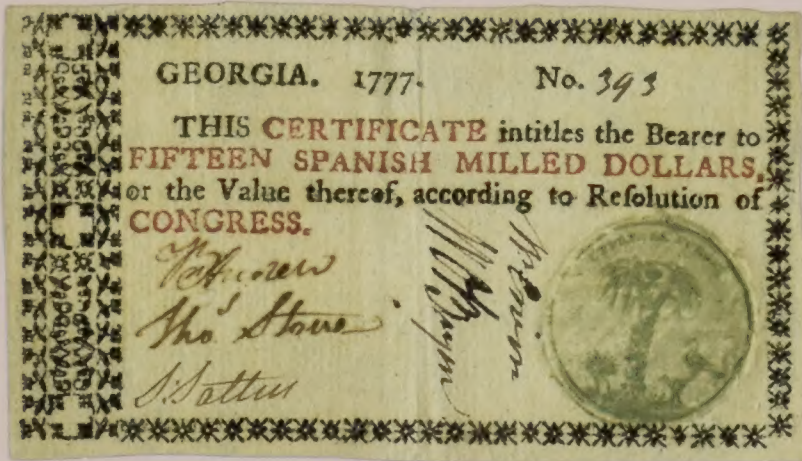 GEORGIA. 1777. No. 393
THIS CERTIFICATE intitles the Bearer to
FIFTEEN SPANISH MILLED DOLLARS,
or the Value thereof, according to Reſolution of
CONGRESS.
Thoˢ Stone